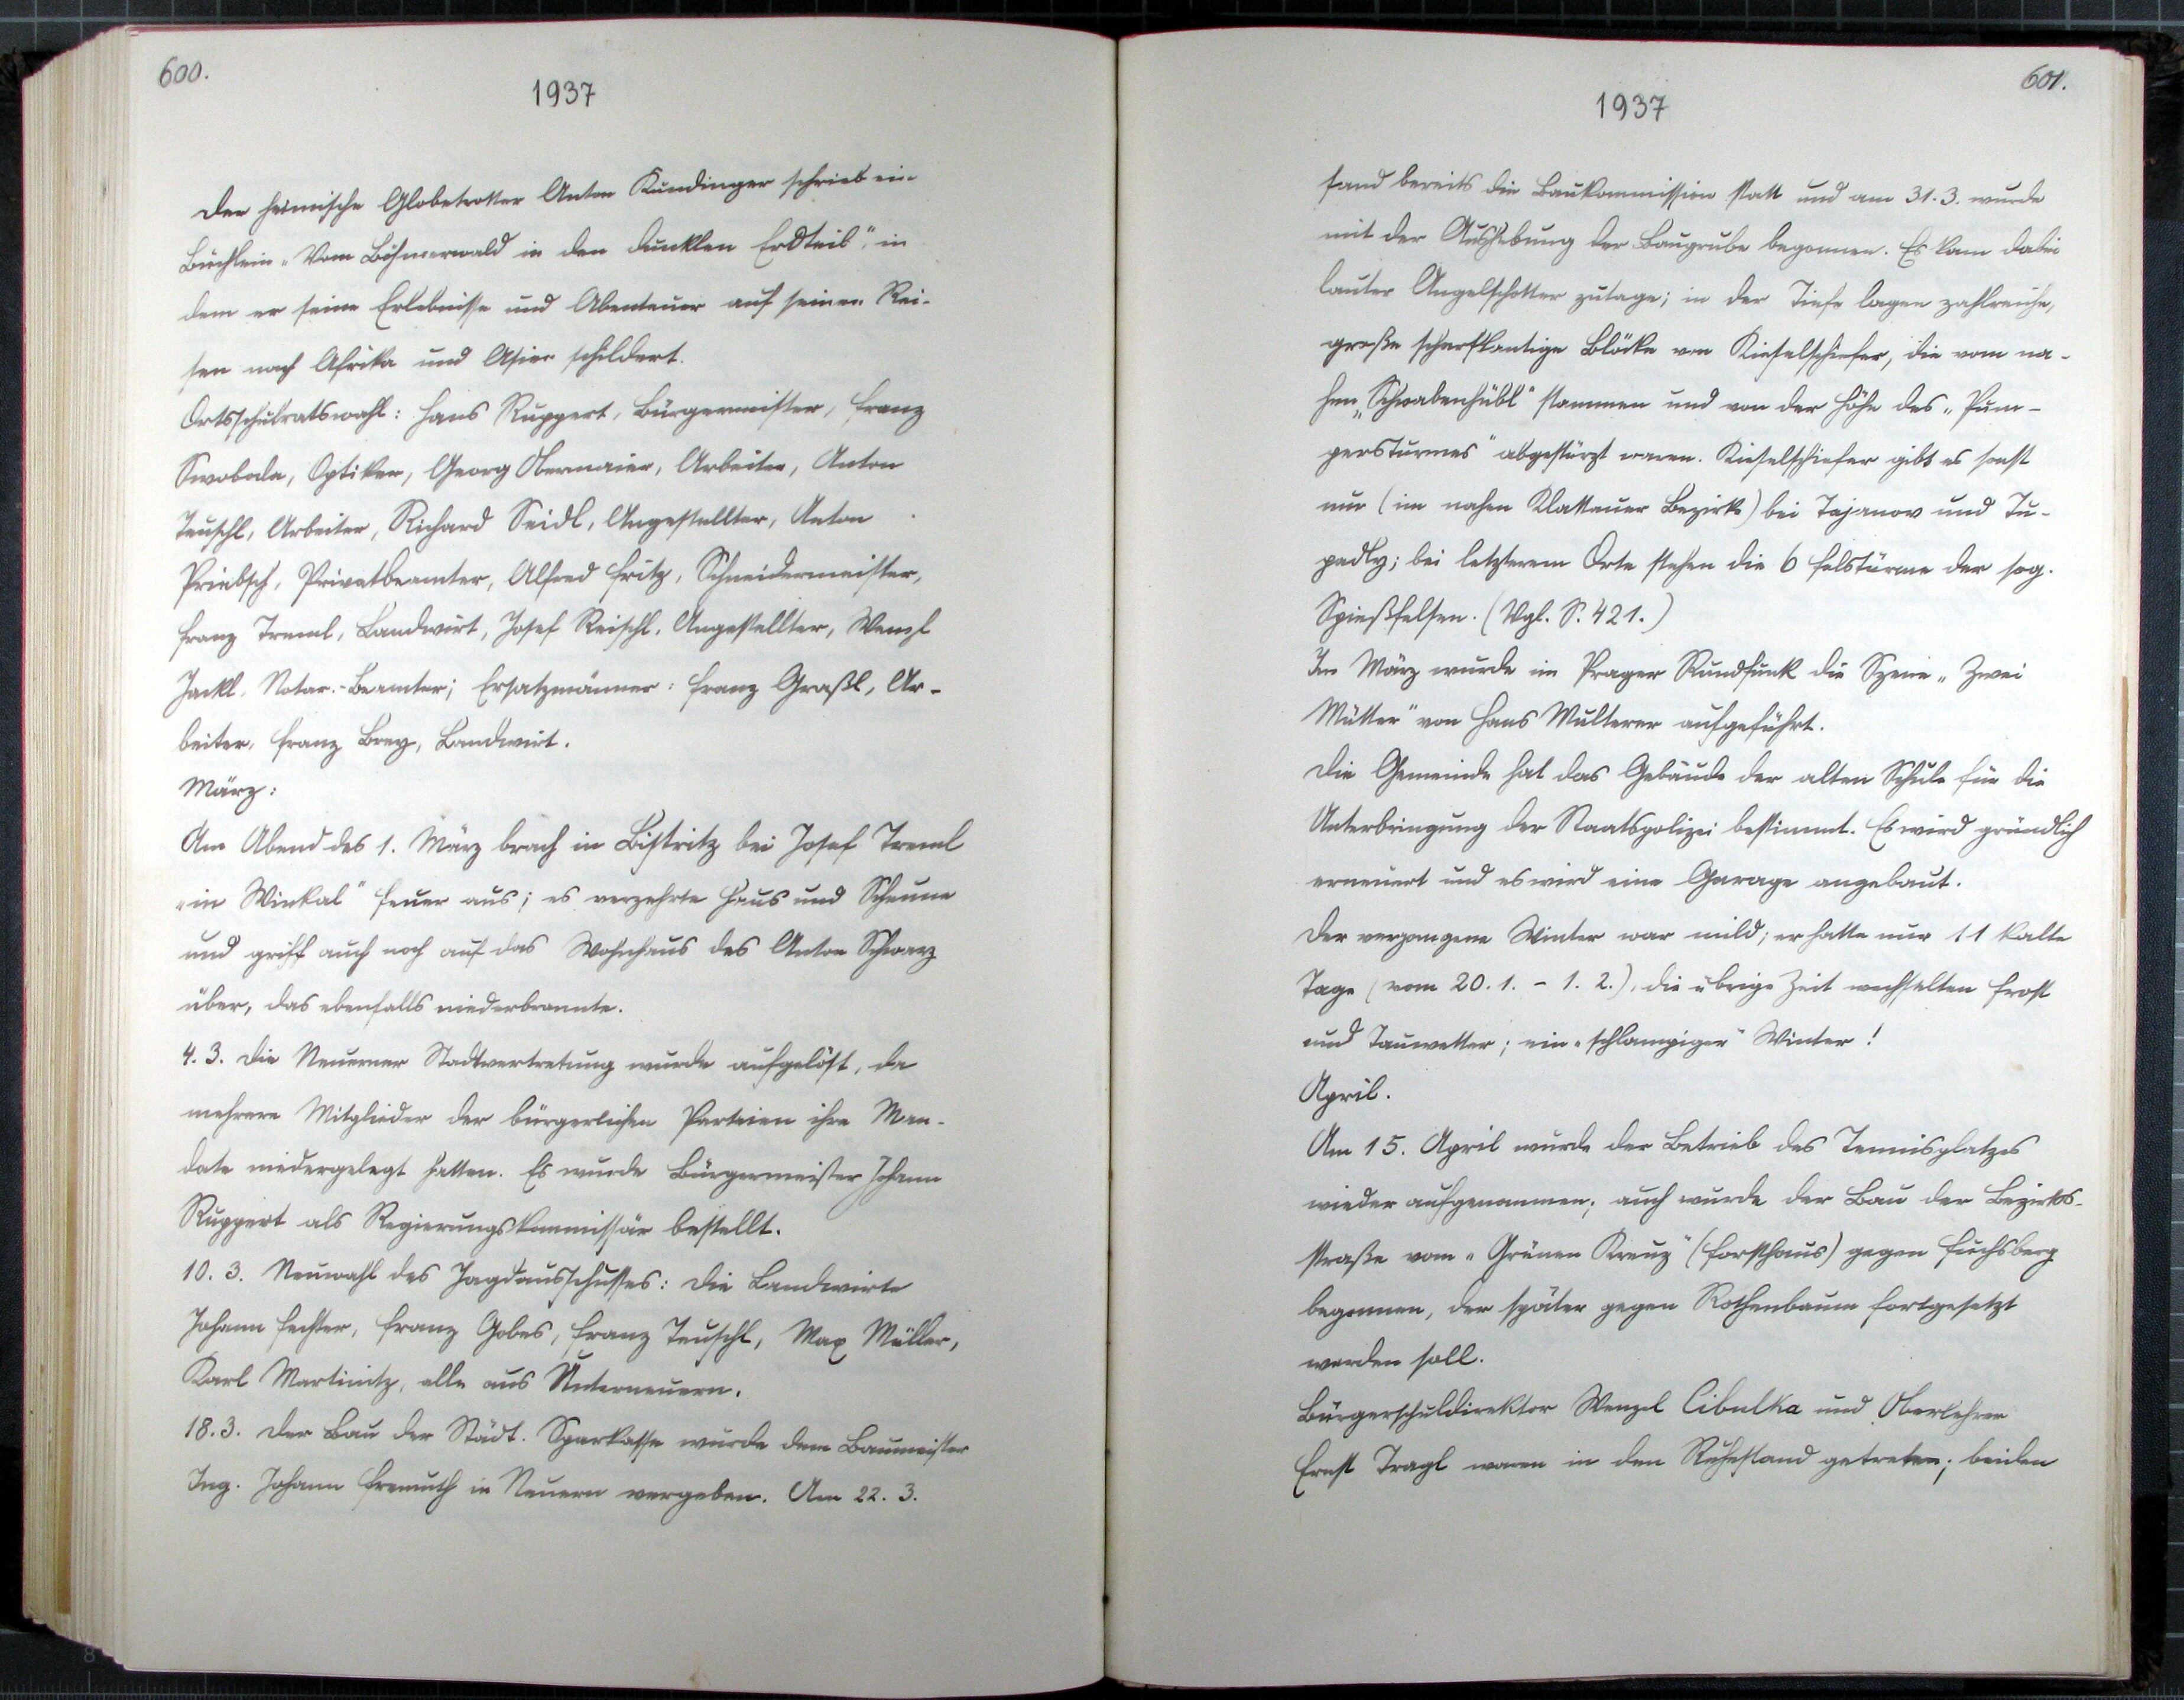 600.
1937
Der heimische Globetrotter Anton Kundinger schrieb ein
Büchlein „Vom Böhmerwald in den dunklen Erdteil", in
dem er seine Erlebnisse und Abenteuer auf seinen Rei-
sen nach Afrika und Asien schildert.
Ortsschulratswahl: Hans Ruppert, Bürgermeister, Franz
Swoboda, Optiker, Georg Obermaier, Arbeiter, Anton
Teuschl, Arbeiter, Richard Seidl, Angestellter, Anton
Priebsch, Privatbeamter, Alfred Fritz, Schneidermeister,
Franz Treml, Landwirt, Josef Reischl, Angestellter, Wenzl
Jackl, Notar.-Beamter; Ersatzmänner: Franz Graßl, Ar-
beiter, Franz Brey, Landwirt.
März:
Am Abend des 1. März brach in Bistritz bei Josef Treml
„in Winkal" Feuer aus; es verzehrte Haus und Scheune
und griff auch noch auf das Wohnhaus des Anton Schwarz
über, das ebenfalls niederbrannte.
4. 3. Die Neuerner Stadtvertretung wurde aufgelöst, da
mehrere Mitglieder der bürgerlichen Parteien ihre Man-
date niedergelegt hatten. Es wurde Bürgermeister Johann
Ruppert als Regierungskommissär bestellt.
10. 3. Neuwahl des Jagdausschusses: Die Landwirte
Johann Fechter, Franz Gobes, Franz Teuschl, Max Müller,
Karl Martinitz, alle aus Unterneuern.
18. 3. Der Bau der Städt. Sparkasse wurde dem Baumeister
Ing. Johann Fremuth in Neuern vergeben. Am 22. 3.
601.
1937
fand bereits die Baukommission statt und am 31. 3. wurde
mit der Aushebung der Baugrube begonnen. Es kam dabei
lauter Angelschotter zutage; in der Tiefe lagen zahlreiche,
große scharfkantige Blöcke von Kieselschiefer, die vom na-
hen „Schwabenhübl" stammen und von der Höhe des „Pum-
persturmes" abgestürzt waren. Kieselschiefer gibt es sonst
nur (im nahen Klattauer Bezirk) bei Tajanov und Tu-
padly; bei letzterem Orte stehen die 6 Felstürme der sog.
Spießfelsen. (Vgl. S. 421.)
Im März wurde im Prager Rundfunk die Szene „Zwei
Mütter" von Hans Multerer aufgeführt.
Die Gemeinde hat das Gebäude der alten Schule für die
Unterbringung der Staatspolizei bestimmt. Es wird gründlich
erneuert und es wird eine Garage angebaut.
Der vergangene Winter war mild; er hatte nur 11 kalte
Tage (vom 20. 1. - 1. 2.), die übrige Zeit wechselten Frost
und Tauwetter; ein „schlampiger" Winter!
April.
Am 15. April wurde der Betrieb des Tennisplatzes
wieder aufgenommen; auch wurde der Bau der Bezirks-
straße vom „Grünen Kreuz" (Forsthaus) gegen Fuchsberg
begonnen, der später gegen Rothenbaum fortgesetzt
werden soll.
Bürgerschuldirektor Wenzel Cibulka und Oberlehrer
Ernst Tragl waren in den Ruhestand getreten; beiden